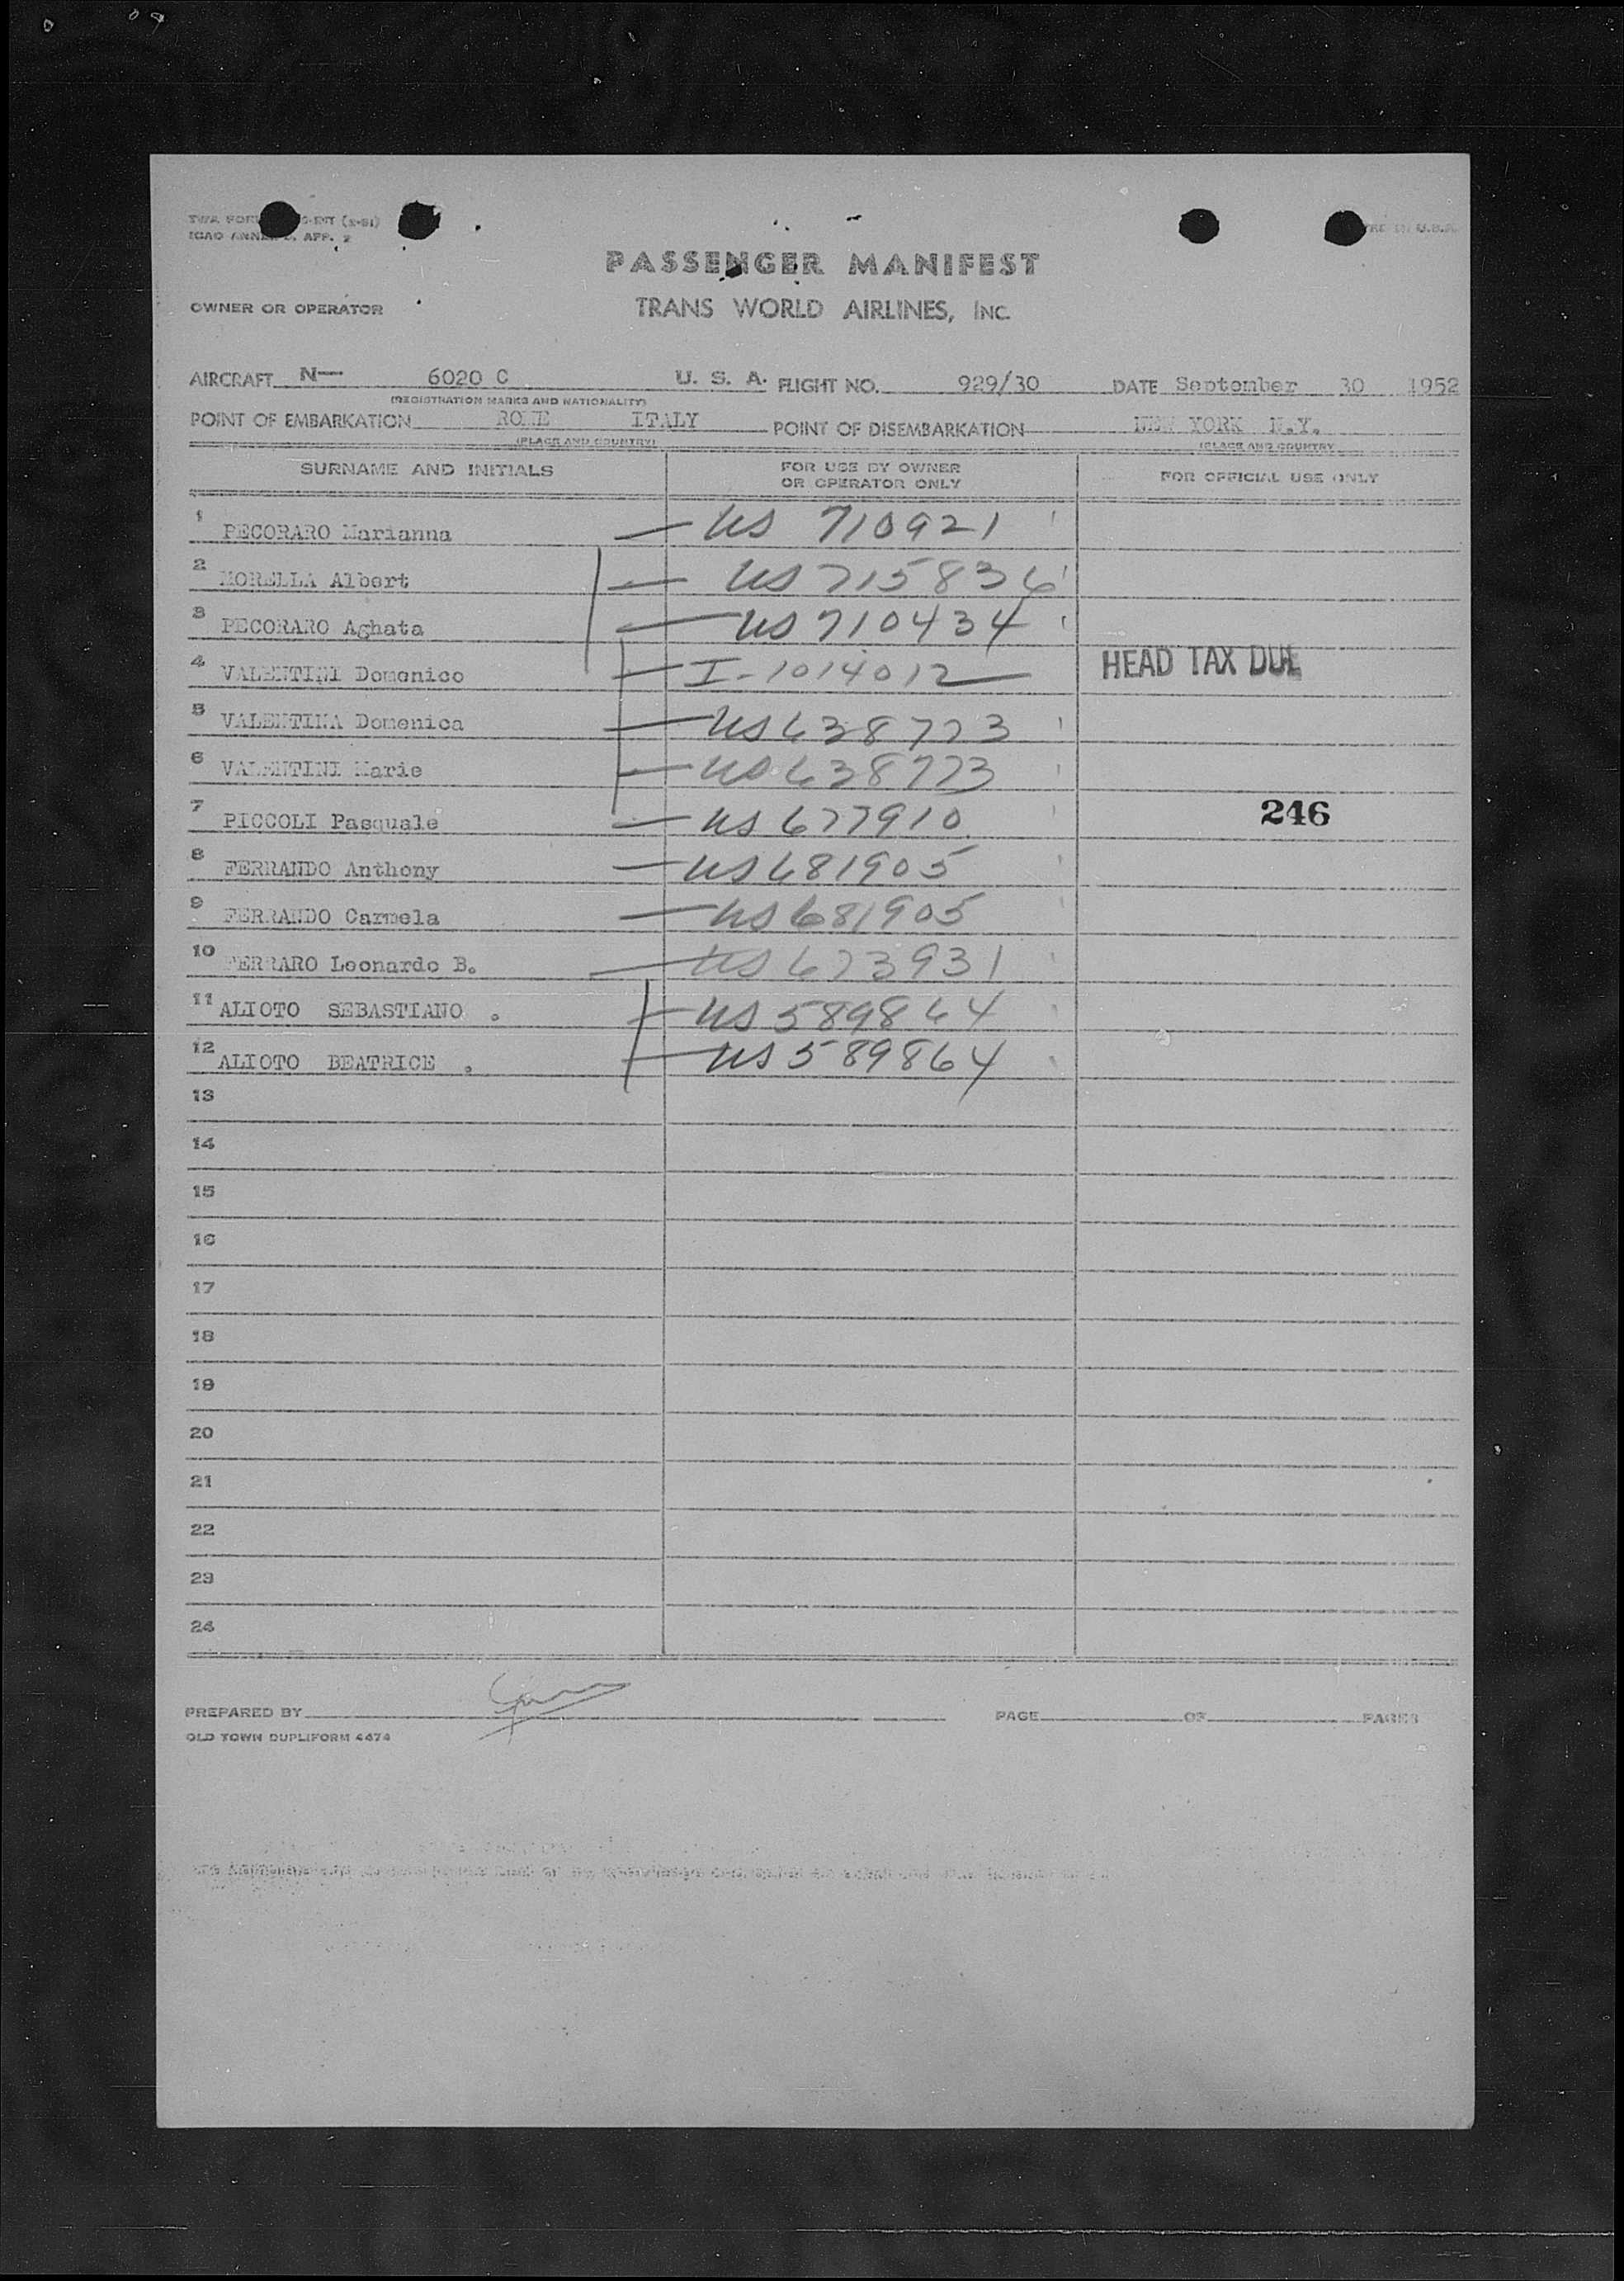 TWA FORM
ICAO ANNEX 9, APP. 2
IN U.S.A.
PASSENGER MANIFEST
OWNER OR OPERATOR
TRANS WORLD AIRLINES, INC.
AIRCRAFT N— 6020 C U. S. A. FLIGHT NO. 929/30 DATE September 30 1952
(REGISTRATION MARKS AND NATIONALITY)
POINT OF EMBARKATION ROME ITALY POINT OF DISEMBARKATION NEW YORK N.Y.
(PLACE AND COUNTRY) (PLACE AND COUNTRY
SURNAME AND INITIALS FOR USE BY OWNER OR OPERATOR ONLY FOR OFFICIAL USE ONLY
1 PECORARO Marianna — US 710921
2 MORELLA Albert — US 715836
3 PECORARO Aghata — US 710434
4 VALENTINI Domenico — I-1014012 HEAD TAX DUE
5 VALENTINA Domenica — US 638773
6 VALENTINI Marie — US 638773
7 PICCOLI Pasquale — US 677910 246
8 FERRANDO Anthony — US 681905
9 FERRANDO Carmela — US 681905
10 FERRARO Leonardo B. — US 673931
11 ALIOTO SEBASTIANO . — US 589864
12 ALIOTO BEATRICE . — US 589864
13
14
15
16
17
18
19
20
21
22
23
24
PREPARED BY PAGE OF PAGES
OLD TOWN DUPLIFORM 4474